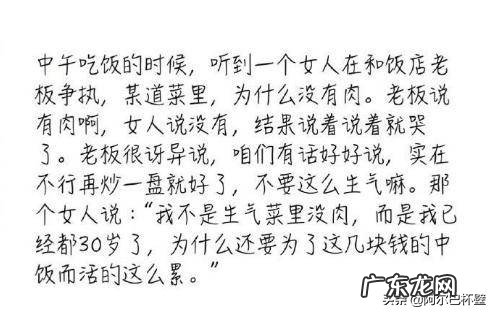 中午吃饭的时候，听到一个女人在和饭店老
板争执，某道菜里，为什么没有肉。老板说
有肉啊，女人说没有，结果说着说着就哭
了。老板很讶异说，咱们有话好好说，实在
不行再炒一盘就好了，不要这么生气嘛。那
个女人说：“我不是生气菜里没肉，而是我已
经都30岁了，为什么还要为了这几块钱的中
饭而活的这么累。”
广东龙网
头条 @阿尔巴杯壁